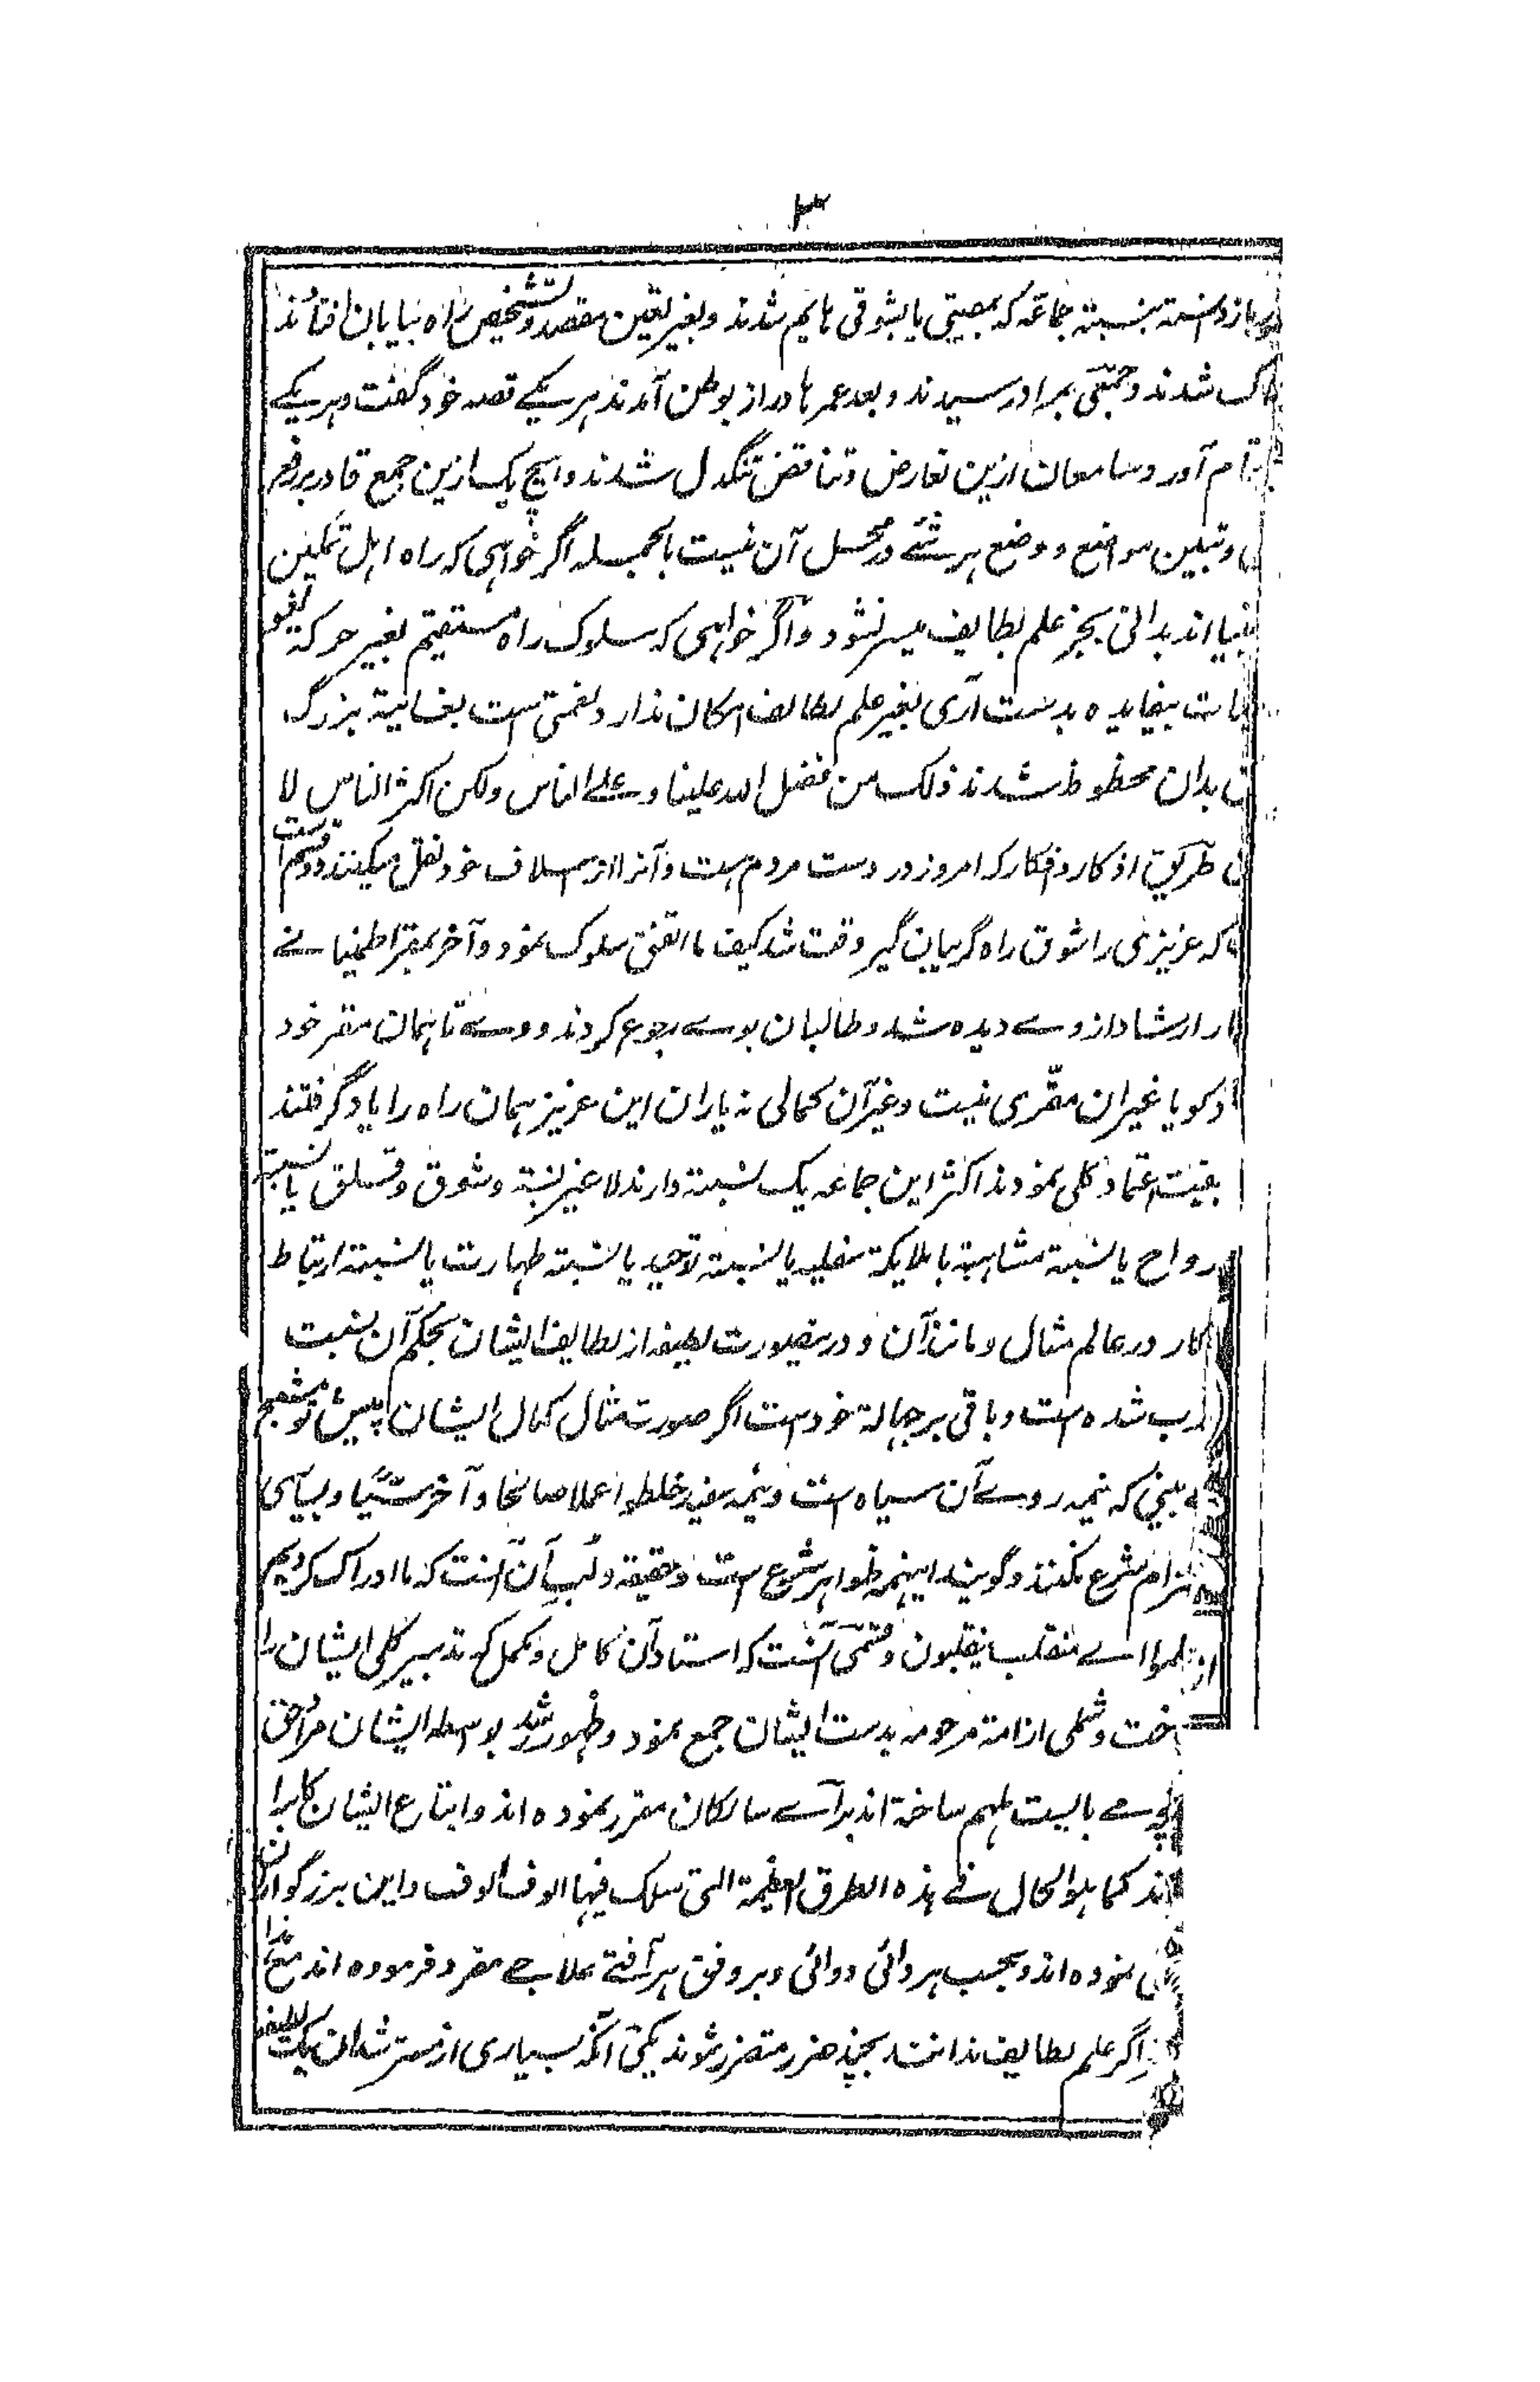 ۳
دانسته بنسبته جماعه که بمصیبتی یا بشوقی هایم شدند و بغیر تعین مقصد و تشخیص راه به بیابان افتادند
شدند و جمعی بمراد رسیدند و بعد عمرهای دراز بوطن آمدند هر یکے قصه خود گفت و هر یکے
آورد و سامعان ازین تعارض و تناقض تنگدل شدند و هیچ یک ازین جمع قادر بر رفع
و تبیین مواضع و وضع هر شئے در محل آن نیست بالجمله اگر خواهی که راه اهل تمکین
اند بدانی بجز علم لطایف میسر نشود و اگر خواهی که سلوک راه مستقیم بغیر حرکه لغو
بیفایده بدست آری بغیر علم لطایف امکان ندارد نعمتی است بغایة بزرگ
بدان محظوظ شدند ذلک من فضل الله علینا و علے الناس ولکن اکثر الناس لا
طریق اذکار و افکار که امروز در دست مردم است و آنرا از اسلاف خود نقل میکنند دو قسم است
که عزیزی را شوق راه گریبان گیر وقت شد کیف ما اتفق سلوک نمود و آخر بمقر اطمینانے
ارشاد از وے دیده شد و طالبان بوے رجوع کردند و وے تا همان مقر خود
گویا غیر ان مقری نیست و غیر آن کمالی نه یاران این عزیز همان راه را یاد گرفتند
اعتماد کلی نمودند اکثر این جماعه یک نسبته دارند لا غیر نسبة و شوق و قلق یا نسبة
ارواح یا نسبته مشابهة با ملایکه سفلیه یا نسبته توحید یا نسبته طهارت یا نسبته ارتباط
در عالم مثال و مانند آن و درینصورت لطیفه از لطایف ایشان بحکم آن نسبت
شده است و باقی بر حالة خود است اگر صورت مثال کمال ایشان پیش تو مشبح
بینی که نیمه روے آن سیاه است و نیمه سفید خلطوا عملا صالحا و آخر سیئا و بسیاری
شرع نکنند و گویند اینهمه ظواهر شرع است و حقیقة و لب آن آنست که ما ادراک کردیم
منقلب ینقلبون و قسمی آنست که استاد آن کامل و مکمل که تدبیر کلی ایشان را
و شملی از امة مرحومه بدست ایشان جمع نمود و ظهور رشد بواسطه ایشان مر حق
مے بایست ملهم ساخته اند براے سالکان مقرر نموده اند و اتباع ایشان کابرا
کما هو الحال فے هذه الطرق العظیمة التی سلک فیها الوف الوف و این بزرگواران
نموده اند و بحسب هر دائی دوائی و بر وفق هر آفتے علاجے مقرر فرموده اند مع هذا
اگر علم لطایف ندانند بچند ضرر متضرر شوند یکی آنکه بسیاری از مسترشدان یک لطیفه